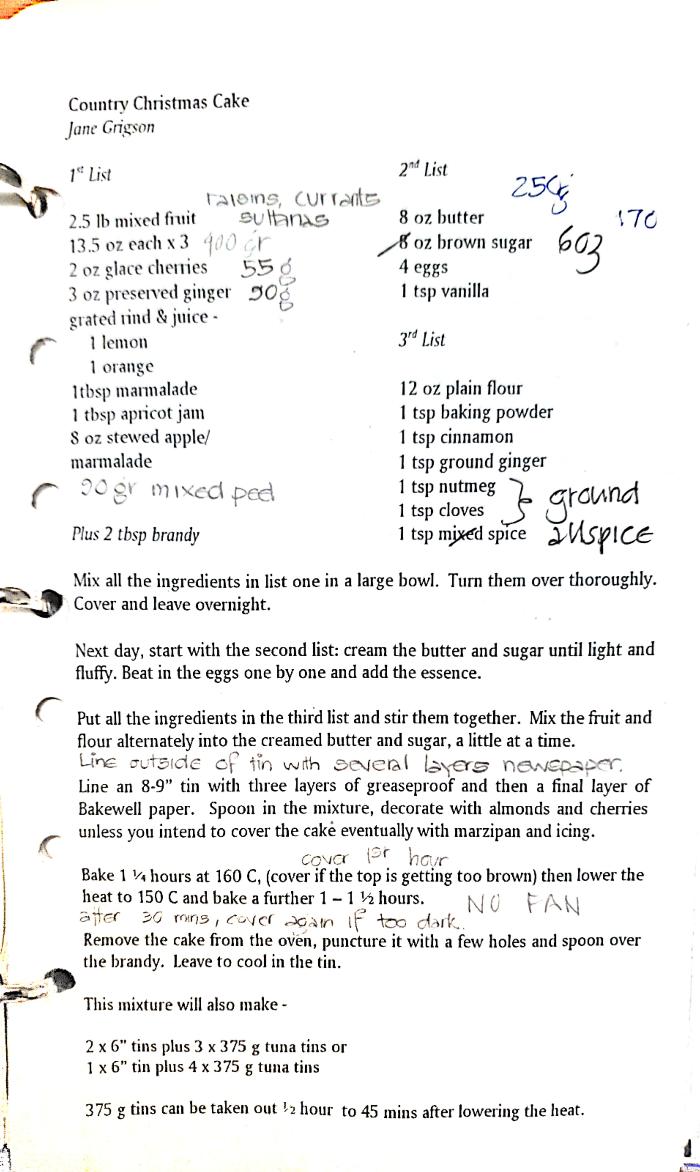 Country Christmas Cake
Jane Grigson
1st List
raisins, currants
2.5 lb mixed fruit sultanas
13.5 oz each x 3 400 gr
2 oz glace cherries 55 g
3 oz preserved ginger 90g
grated rind & juice -
1 lemon
1 orange
1tbsp marmalade
1 tbsp apricot jam
8 oz stewed apple/
marmalade
90 gr mixed peel
Plus 2 tbsp brandy
2nd List
250g
8 oz butter 170
8 oz brown sugar 6oz
4 eggs
1 tsp vanilla
3rd List
12 oz plain flour
1 tsp baking powder
1 tsp cinnamon
1 tsp ground ginger
1 tsp nutmeg } ground
1 tsp cloves
1 tsp mixed spice allspice
Mix all the ingredients in list one in a large bowl. Turn them over thoroughly.
Cover and leave overnight.
Next day, start with the second list: cream the butter and sugar until light and
fluffy. Beat in the eggs one by one and add the essence.
Put all the ingredients in the third list and stir them together. Mix the fruit and
flour alternately into the creamed butter and sugar, a little at a time.
Line outside of tin with several layers newspaper.
Line an 8-9” tin with three layers of greaseproof and then a final layer of
Bakewell paper. Spoon in the mixture, decorate with almonds and cherries
unless you intend to cover the cake eventually with marzipan and icing.
cover 1st hour
Bake 1 ¼ hours at 160 C, (cover if the top is getting too brown) then lower the
heat to 150 C and bake a further 1 – 1 ½ hours. NO FAN
after 30 mins, cover again if too dark.
Remove the cake from the oven, puncture it with a few holes and spoon over
the brandy. Leave to cool in the tin.
This mixture will also make -
2 x 6” tins plus 3 x 375 g tuna tins or
1 x 6” tin plus 4 x 375 g tuna tins
375 g tins can be taken out ½ hour to 45 mins after lowering the heat.